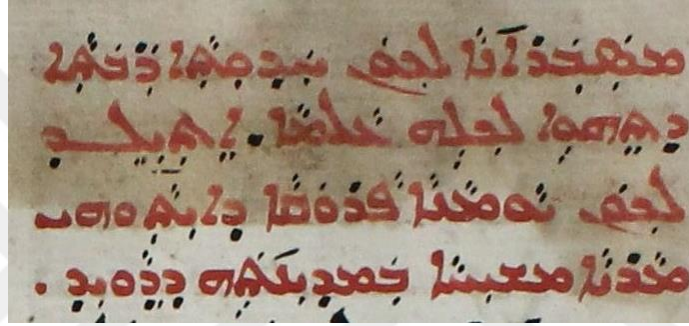 ܡܣܒܪܐܢܐ ܠܟܘܢ ܚܕܘܬܐ ܪܒܬܐ
ܕܬܗܘܐ ܠܟܠܗ ܥܠܡܐ. ܐܬܝܠܕ
ܠܟܘܢ ܝܘܡܢܐ ܦܪܘܩܐ ܕܐܝܬܘܗܝ
ܡܪܝܐ ܡܫܝܚܐ ܒܡܕܝܢܬܗ ܕܕܘܝܕ .